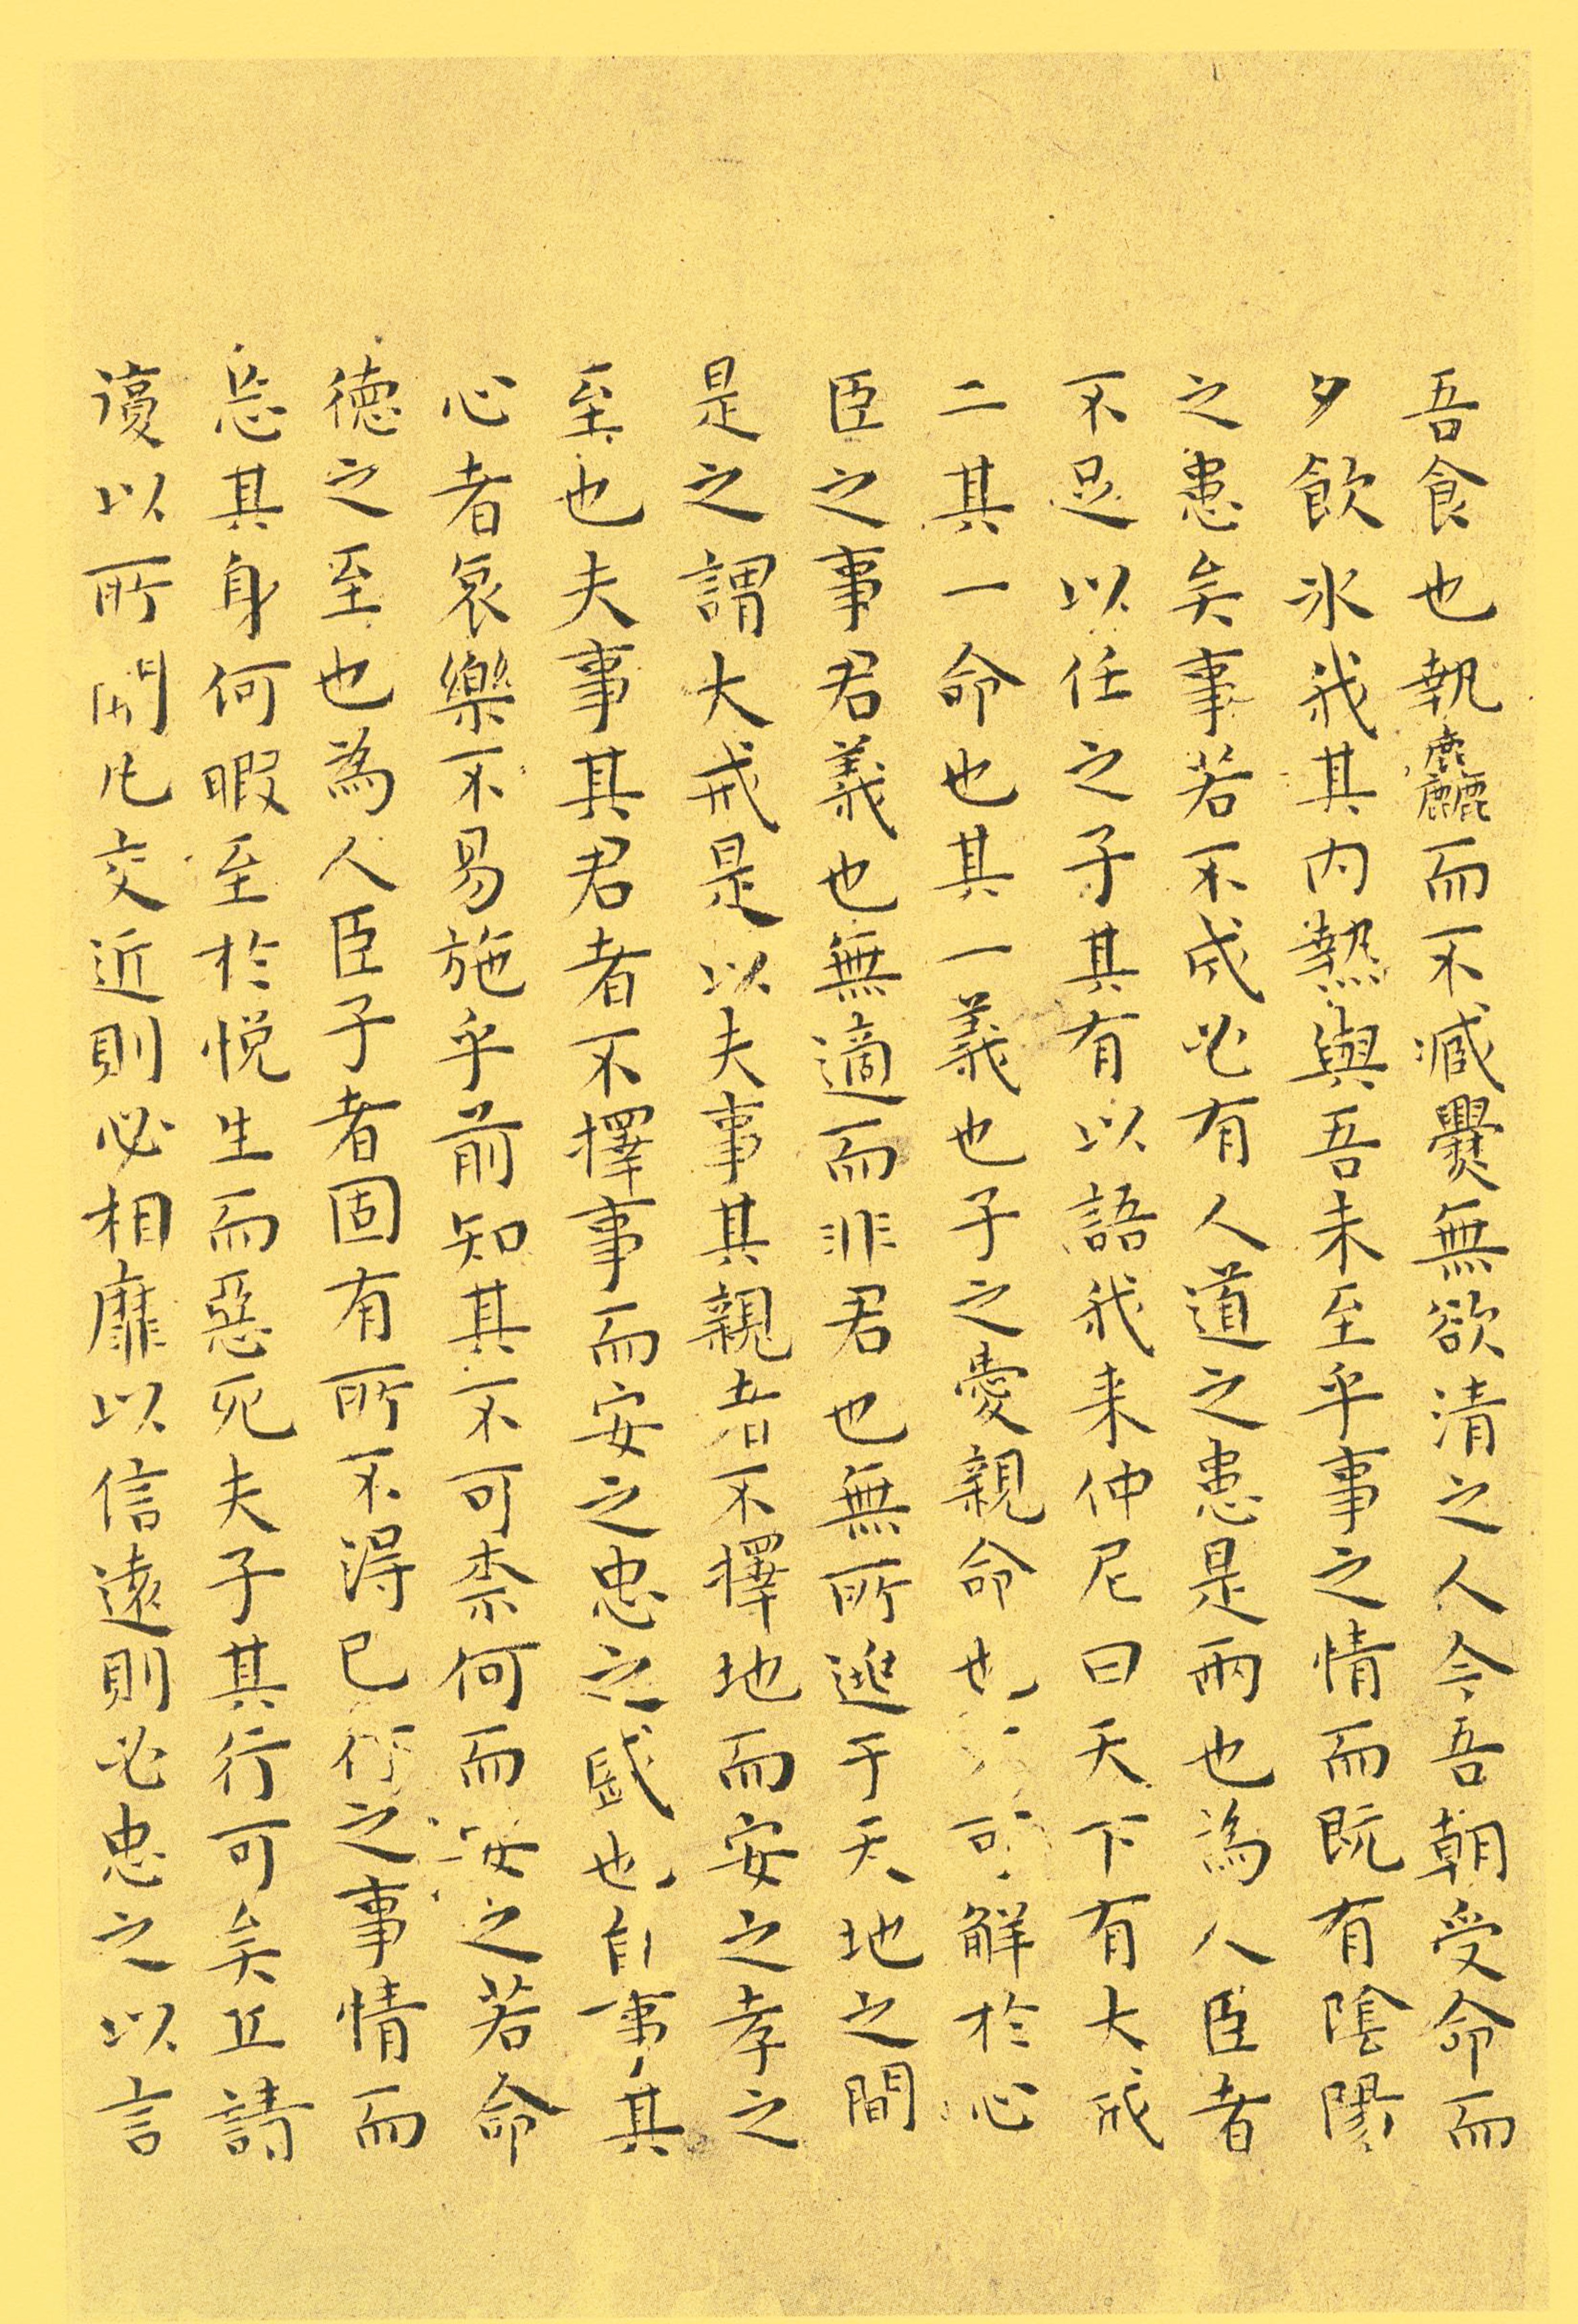 吾食也執麤而不臧爨無欲清之人今吾朝受命而
夕飲氷我其内熱與吾未至乎事之情而既有陰陽
之患矣事若不成必有人道之患是兩也為人臣者
不足以任之子其有以語我来仲尼曰天下有大戒
二其一命也其一義也子之愛親命也可解於心
臣之事君義也無適而非君也無所逃于天地之間
是之謂大戒是以夫事其親者不擇地而安之孝之
至也夫事其君者不擇事而安之忠之盛也自事其
心者哀樂不易施乎前知其不可柰何而安之若命
德之至也為人臣子者固有所不得已行之事情而
忘其身何暇至於悦生而惡死夫子其行可矣丘請
復以所聞凡交近則必相靡以信遠則必忠之以言